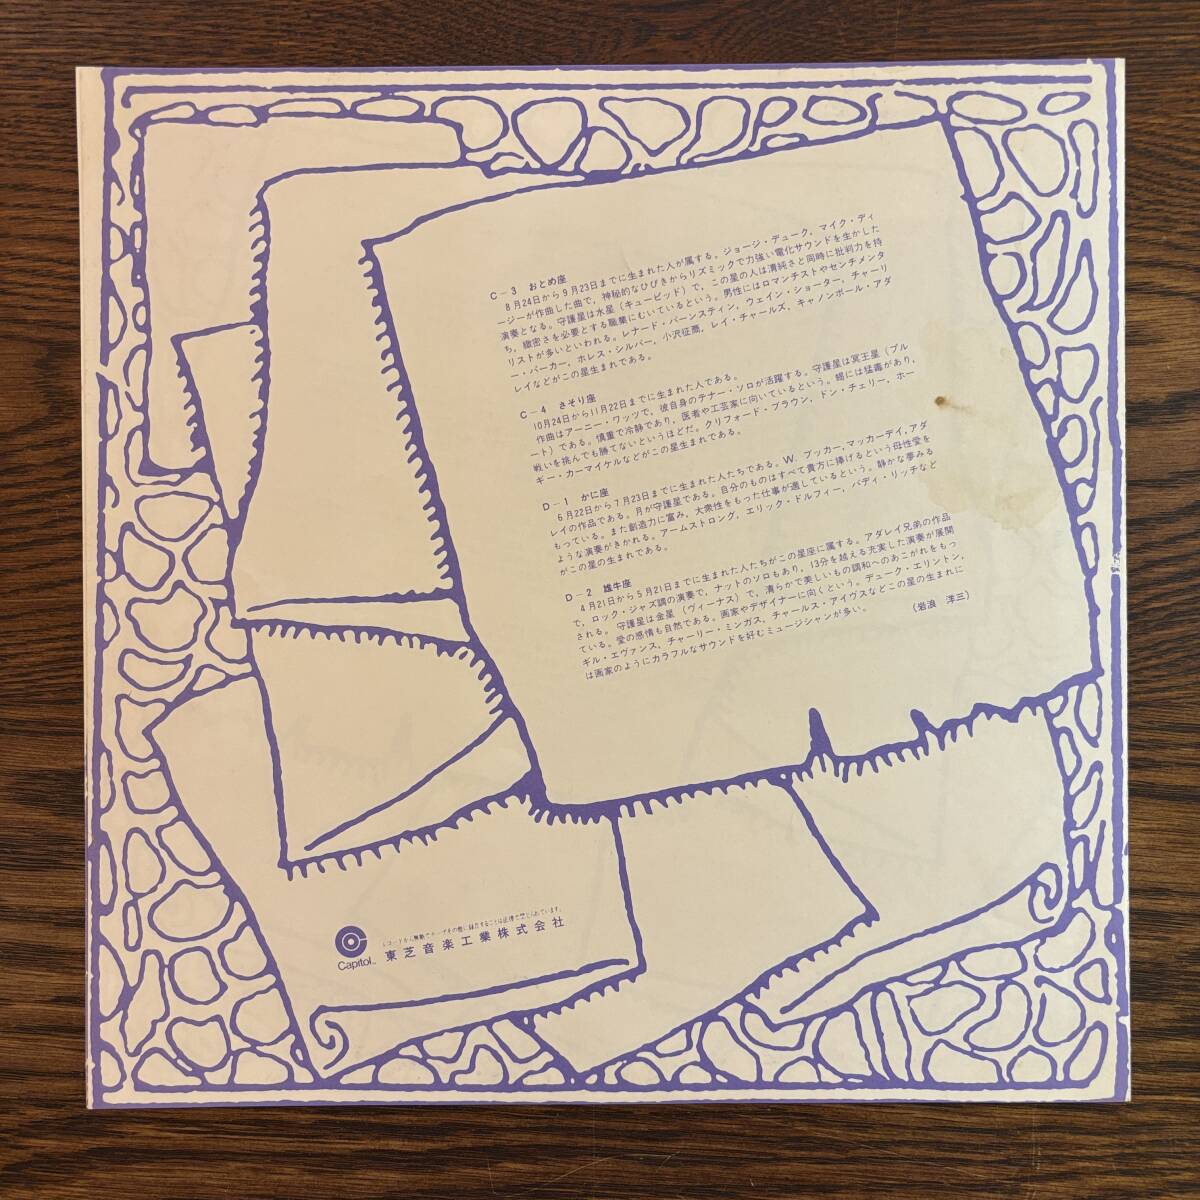 C－3　おとめ座
8月24日から9月23日までに生まれた人が属する。ジョージ・デューク，マイク・ディ
ージーが作曲した曲で，神秘的なひびきからリズミックで力強い電化サウンドを生かした
演奏となる。守護星は水星（キューピッド）で，この星の人は清純さと同時に批判力を持
ち，緻密さを必要とする職業にむいているという。男性にはロマンチストやセンチメンタ
リストが多いといわれる。レナード・バーンスティン，ウェイン・ショーター，チャーリ
ー・パーカー，ホレス・シルバー，小沢征爾，レイ・チャールズ，キャノンボール・アダ
レイなどがこの星生まれである。
C－4　さそり座
10月24日から11月22日までに生まれた人である。
作曲はアーニー・ワッツで，彼自身のテナー・ソロが活躍する。守護星は冥王星（プル
ート）である。慎重で冷静であり，医者や工芸家に向いているという。蝎には猛毒があり，
戦いを挑んでも勝てないというほどだ。クリフォード・ブラウン，ドン・チェリー，ホー
ギー・カーマイケルなどがこの星生まれである。
D－1　かに座
6月22日から7月23日までに生まれた人たちである。W．ブッカー，マッカーデイ，アダ
レイの作品である。月が守護星である。自分のものはすべて貴方に捧げるという母性愛を
もっている。また創造力に富み，大衆性をもった仕事が適しているという。静かな夢みる
ような演奏がきかれる。アームストロング，エリック・ドルフィー，バディ・リッチなど
がこの星の生まれである。
D－2　雄牛座
4月21日から5月21日までに生まれた人たちがこの星座に属する。アダレイ兄弟の作品
で，ロック・ジャズ調の演奏で，ナットのソロもあり，13分を越える充実した演奏が展開
される。守護星は金星（ヴィーナス）で，清らかで美しいもの調和へのあこがれをもっ
ている。愛の感情も自然である。画家やデザイナーに向くという。デューク・エリントン，
ギル・エヴァンス，チャーリー・ミンガス，チャールス・アイヴスなどこの星の生まれに
は画家のようにカラフルなサウンドを好むミュージシャンが多い。
（岩浪　洋三）
レコードから無断でテープその他に録音することは法律で禁じられています。
Capitol™ 東芝音楽工業株式会社